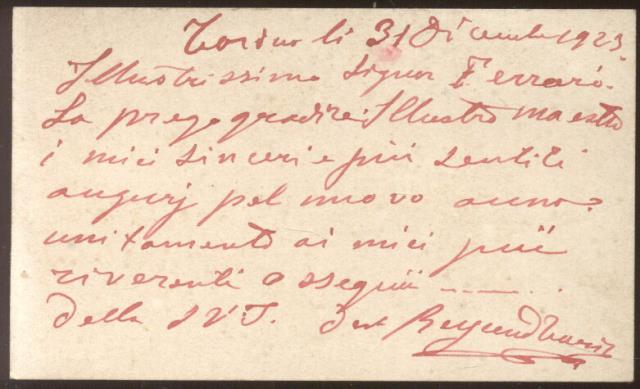 Torino li 31 Dicembre 1923
Illustrissimo Signor Ferrari.
La prego gradire Illustro maestro
i miei sinceri e più sentiti
augurj pel nuovo anno
unitamento ai miei più
riverenti ossequii
Della S.V.I.